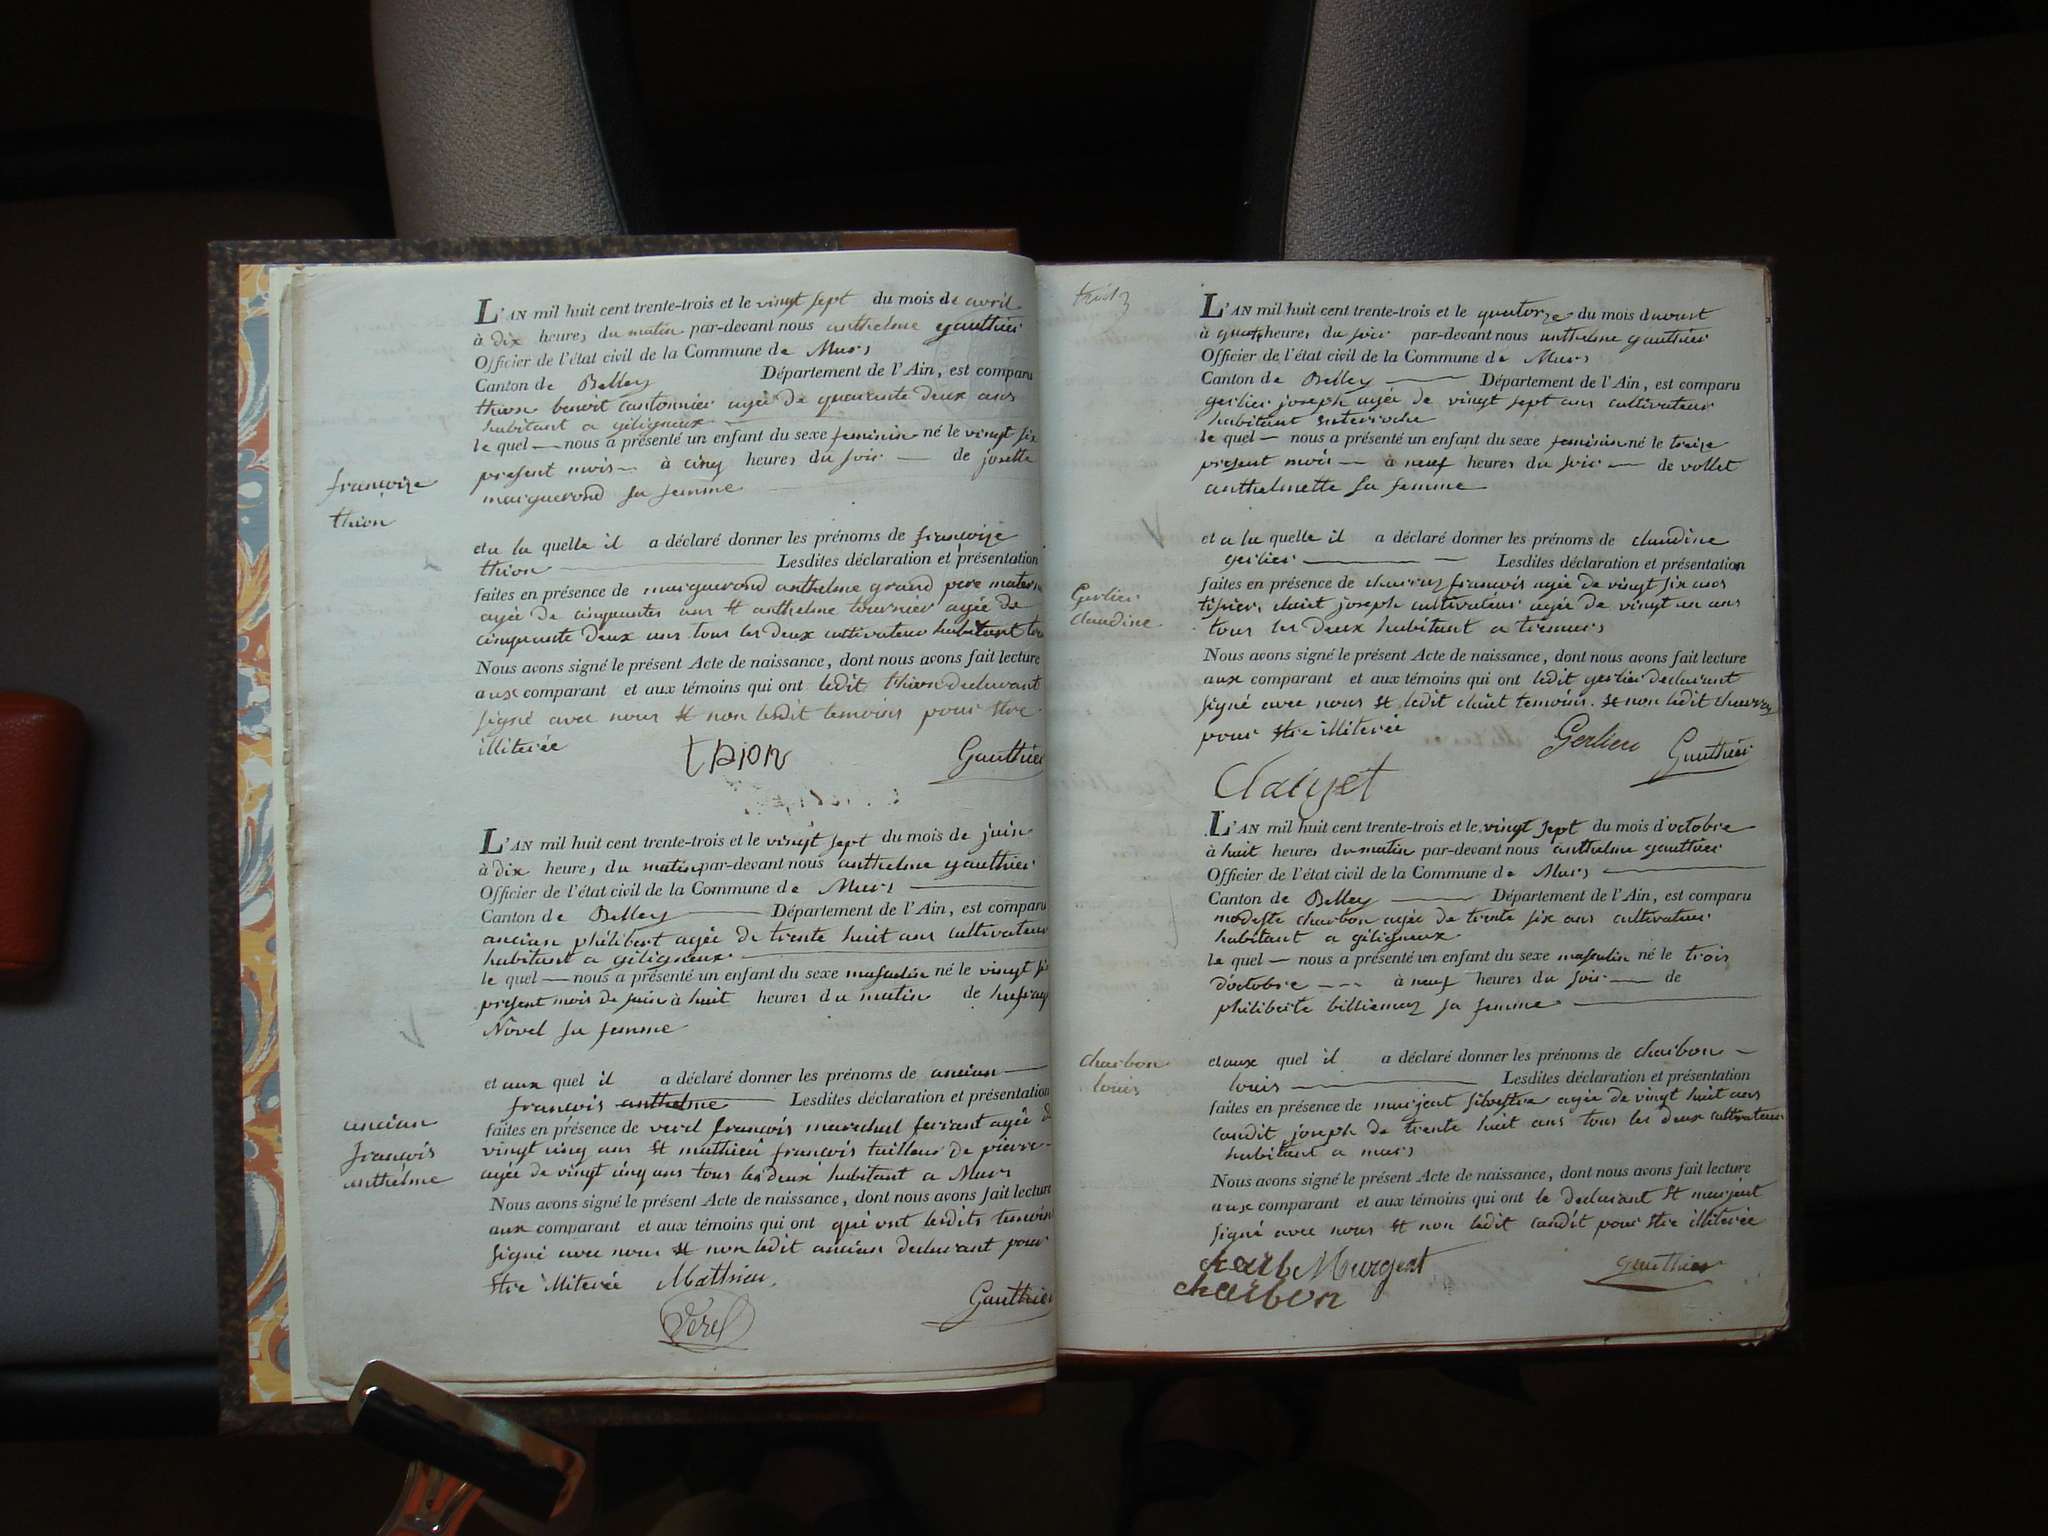 L'AN mil huit cent trente-trois et le vingt sept du mois de avril
à dix heures du matin par-devant nous anthelme gauthier
Officier de l'état civil de la Commune de Murs
Canton de Belley Département de l'Ain, est comparu
thion benoit cantonnier agée de quarante deux ans
habitant a giligneux
le quel — nous a présenté un enfant du sexe feminin né le vingt six
present mois — à cinq heures du soir — de josette
marguerond sa femme
françoise
thion
et a la quelle il a déclaré donner les prénoms de françoise
thion Lesdites déclaration et présentation
faites en présence de marguerond anthelme grand pere
agée de cinquantes ans et anthelme tournier agée de
cinquante deux ans tous les deux cultivateur habitant
Nous avons signé le présent Acte de naissance, dont nous avons fait lecture
aux comparant et aux témoins qui ont ledit thion declarant
signé avec nous et non lesdit temoins pour stre
illiterée thion Gauthier
L'AN mil huit cent trente-trois et le vingt sept du mois de juin
à dix heures du matin par-devant nous anthelme gauthier
Officier de l'état civil de la Commune de Murs
Canton de Belley Département de l'Ain, est comparu
ancian phélibert agée de trente huit ans cultivateur
habitant a giligneux
le quel — nous a présenté un enfant du sexe masculin né le vingt
present mois de juin à huit heures du matin de
Novel sa femme
et aux quel il a déclaré donner les prénoms de ancian
françois anthelme Lesdites déclaration et présentation
ancian
françois
anthelme
faites en présence de verel françois marechal ferrant agée
vingt cinq ans et mathieu françois tailleur de pierre
agée de vingt cinq ans tous les deux habitant a Murs
Nous avons signé le présent Acte de naissance, dont nous avons fait lecture
aux comparant et aux témoins qui ont qui ont lesdits temoins
signé avec nous et non ledit ancian declarant pour
stre illiterée Mathieu
Verel Gauthier
L'AN mil huit cent trente-trois et le quatorze du mois
à heures du soir par-devant nous anthelme gauthier
Officier de l'état civil de la Commune de Murs
Canton de Belley — Département de l'Ain, est comparu
gerlier joseph agée de vingt sept ans cultivateur
habitant
le quel — nous a présenté un enfant du sexe feminin né le treize
present mois — à neuf heures du soir — de vollet
anthelmette sa femme
et a la quelle il a déclaré donner les prénoms de claudine
gerlier — Lesdites déclaration et présentation
Gerlier
claudine
faites en présence de françois agée de vingt six ans
joseph cultivateur agée de vingt un ans
tous les deux habitant a
Nous avons signé le présent Acte de naissance, dont nous avons fait lecture
aux comparant et aux témoins qui ont ledit gerlier declarant
signé avec nous et ledit temoins. et non ledit
pour stre illiterée Gerlier Gauthier
L'AN mil huit cent trente-trois et le vingt sept du mois d'octobre
à huit heures du matin par-devant nous anthelme gauthier
Officier de l'état civil de la Commune de Murs
Canton de Belley — Département de l'Ain, est comparu
modeste charbon agée de trente six ans cultivateur
habitant a giligneux
le quel — nous a présenté un enfant du sexe masculin né le trois
d'octobre — à neuf heures du soir — de
philiberte billiemaz sa femme
charbon
louis
et aux quel il a déclaré donner les prénoms de charbon —
louis — Lesdites déclaration et présentation
faites en présence de silvestre agée de vingt huit ans
joseph de trente huit ans tous les deux cultivateur
habitant a murs
Nous avons signé le présent Acte de naissance, dont nous avons fait lecture
aux comparant et aux témoins qui ont le declarant et
signé avec nous et non ledit pour stre illiterée
charb Gauthier
charbon